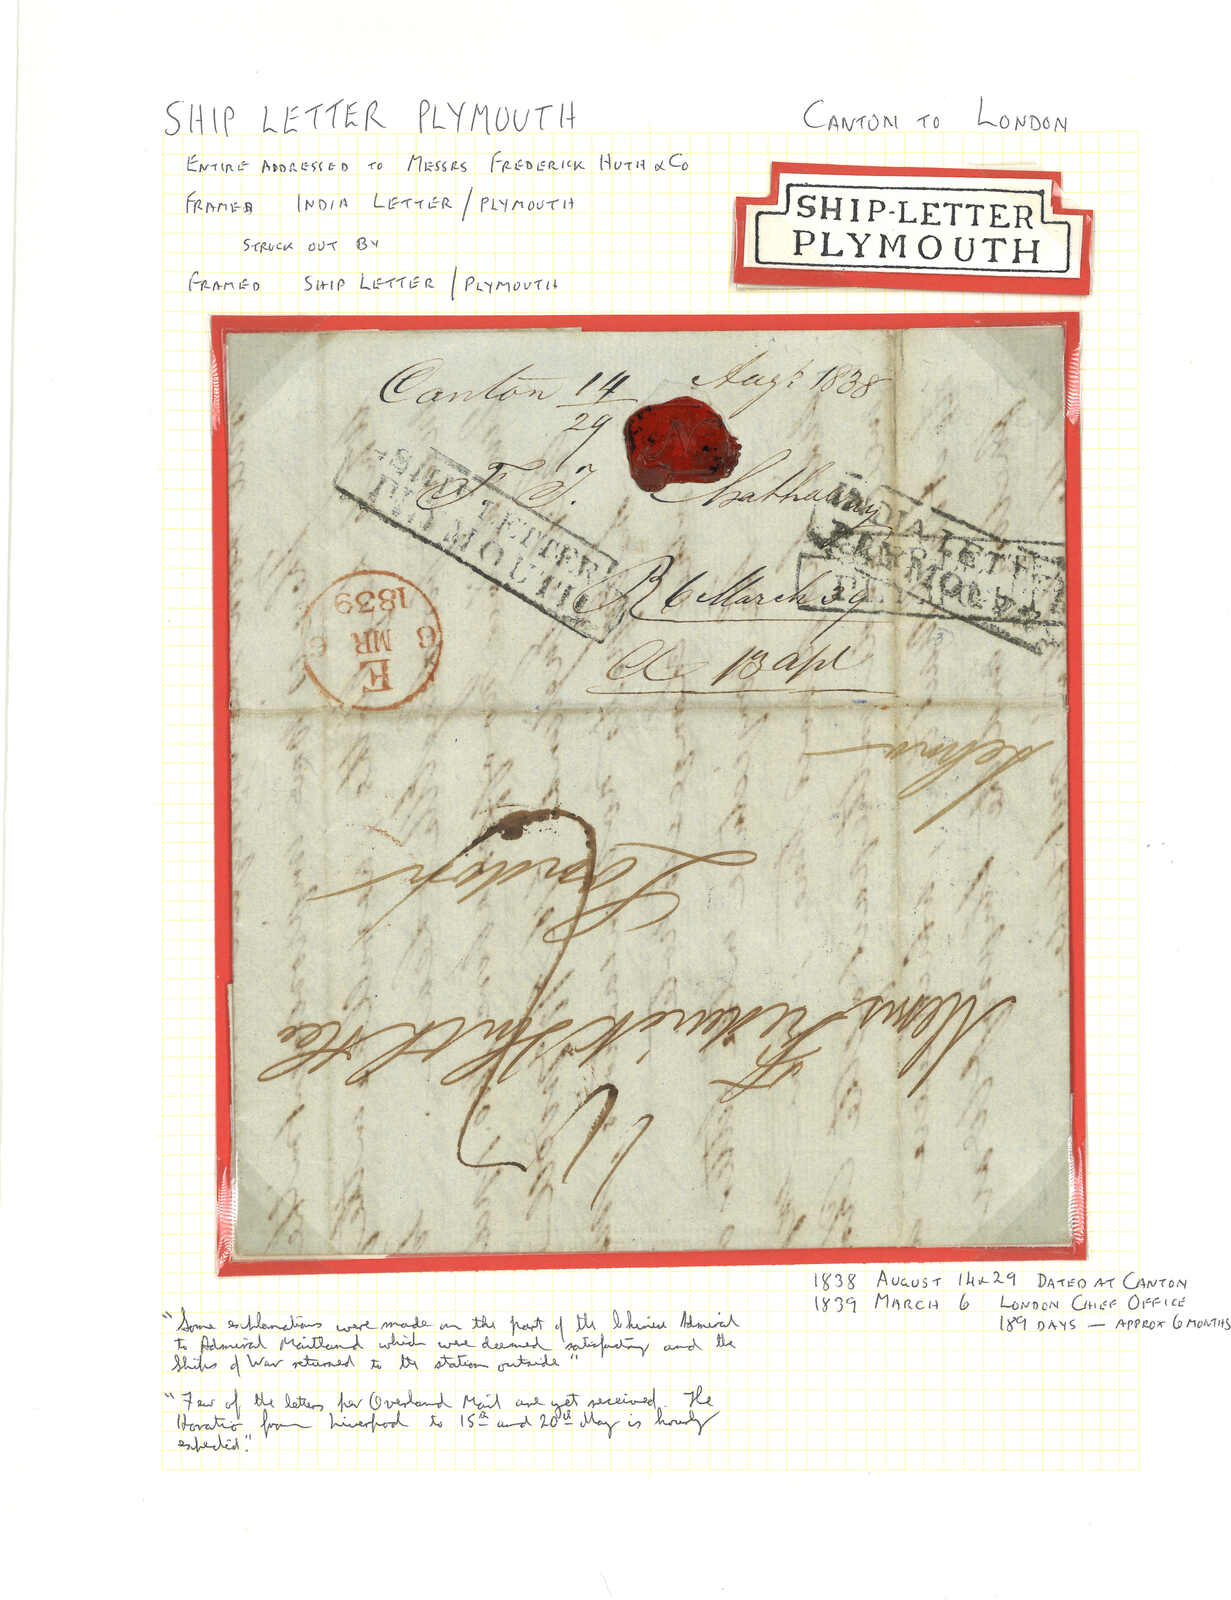 SHIP LETTER PLYMOUTH
CANTON TO LONDON
ENTIRE ADDRESSED TO MESSRS FREDERICK HUTH & CO
FRAMED INDIA LETTER / PLYMOUTH
STRUCK OUT BY
FRAMED SHIP LETTER / PLYMOUTH
SHIP-LETTER
PLYMOUTH
Canton 14/29 Augt 1838
F. T. Hathaway
R 6 March 39
A 13 Apl
SHIP LETTER
PLYMOUTH
INDIA LETTER
PLYMOUTH
PLYMOUTH
E
6 MR 6
1839
London
Messrs Frederick Huth & Co
1838 AUGUST 14 & 29 DATED AT CANTON
1839 MARCH 6 LONDON CHIEF OFFICE
189 DAYS — APPROX 6 MONTHS
"Some explanations were made on the part of the Chinese Admiral
to Admiral Maitland which were deemed satisfactory and the
Ships of War returned to the station outside"
"Few of the letters per Overland Mail are yet received. The
Horatio from Liverpool to 15th and 20th May is hourly
expected."